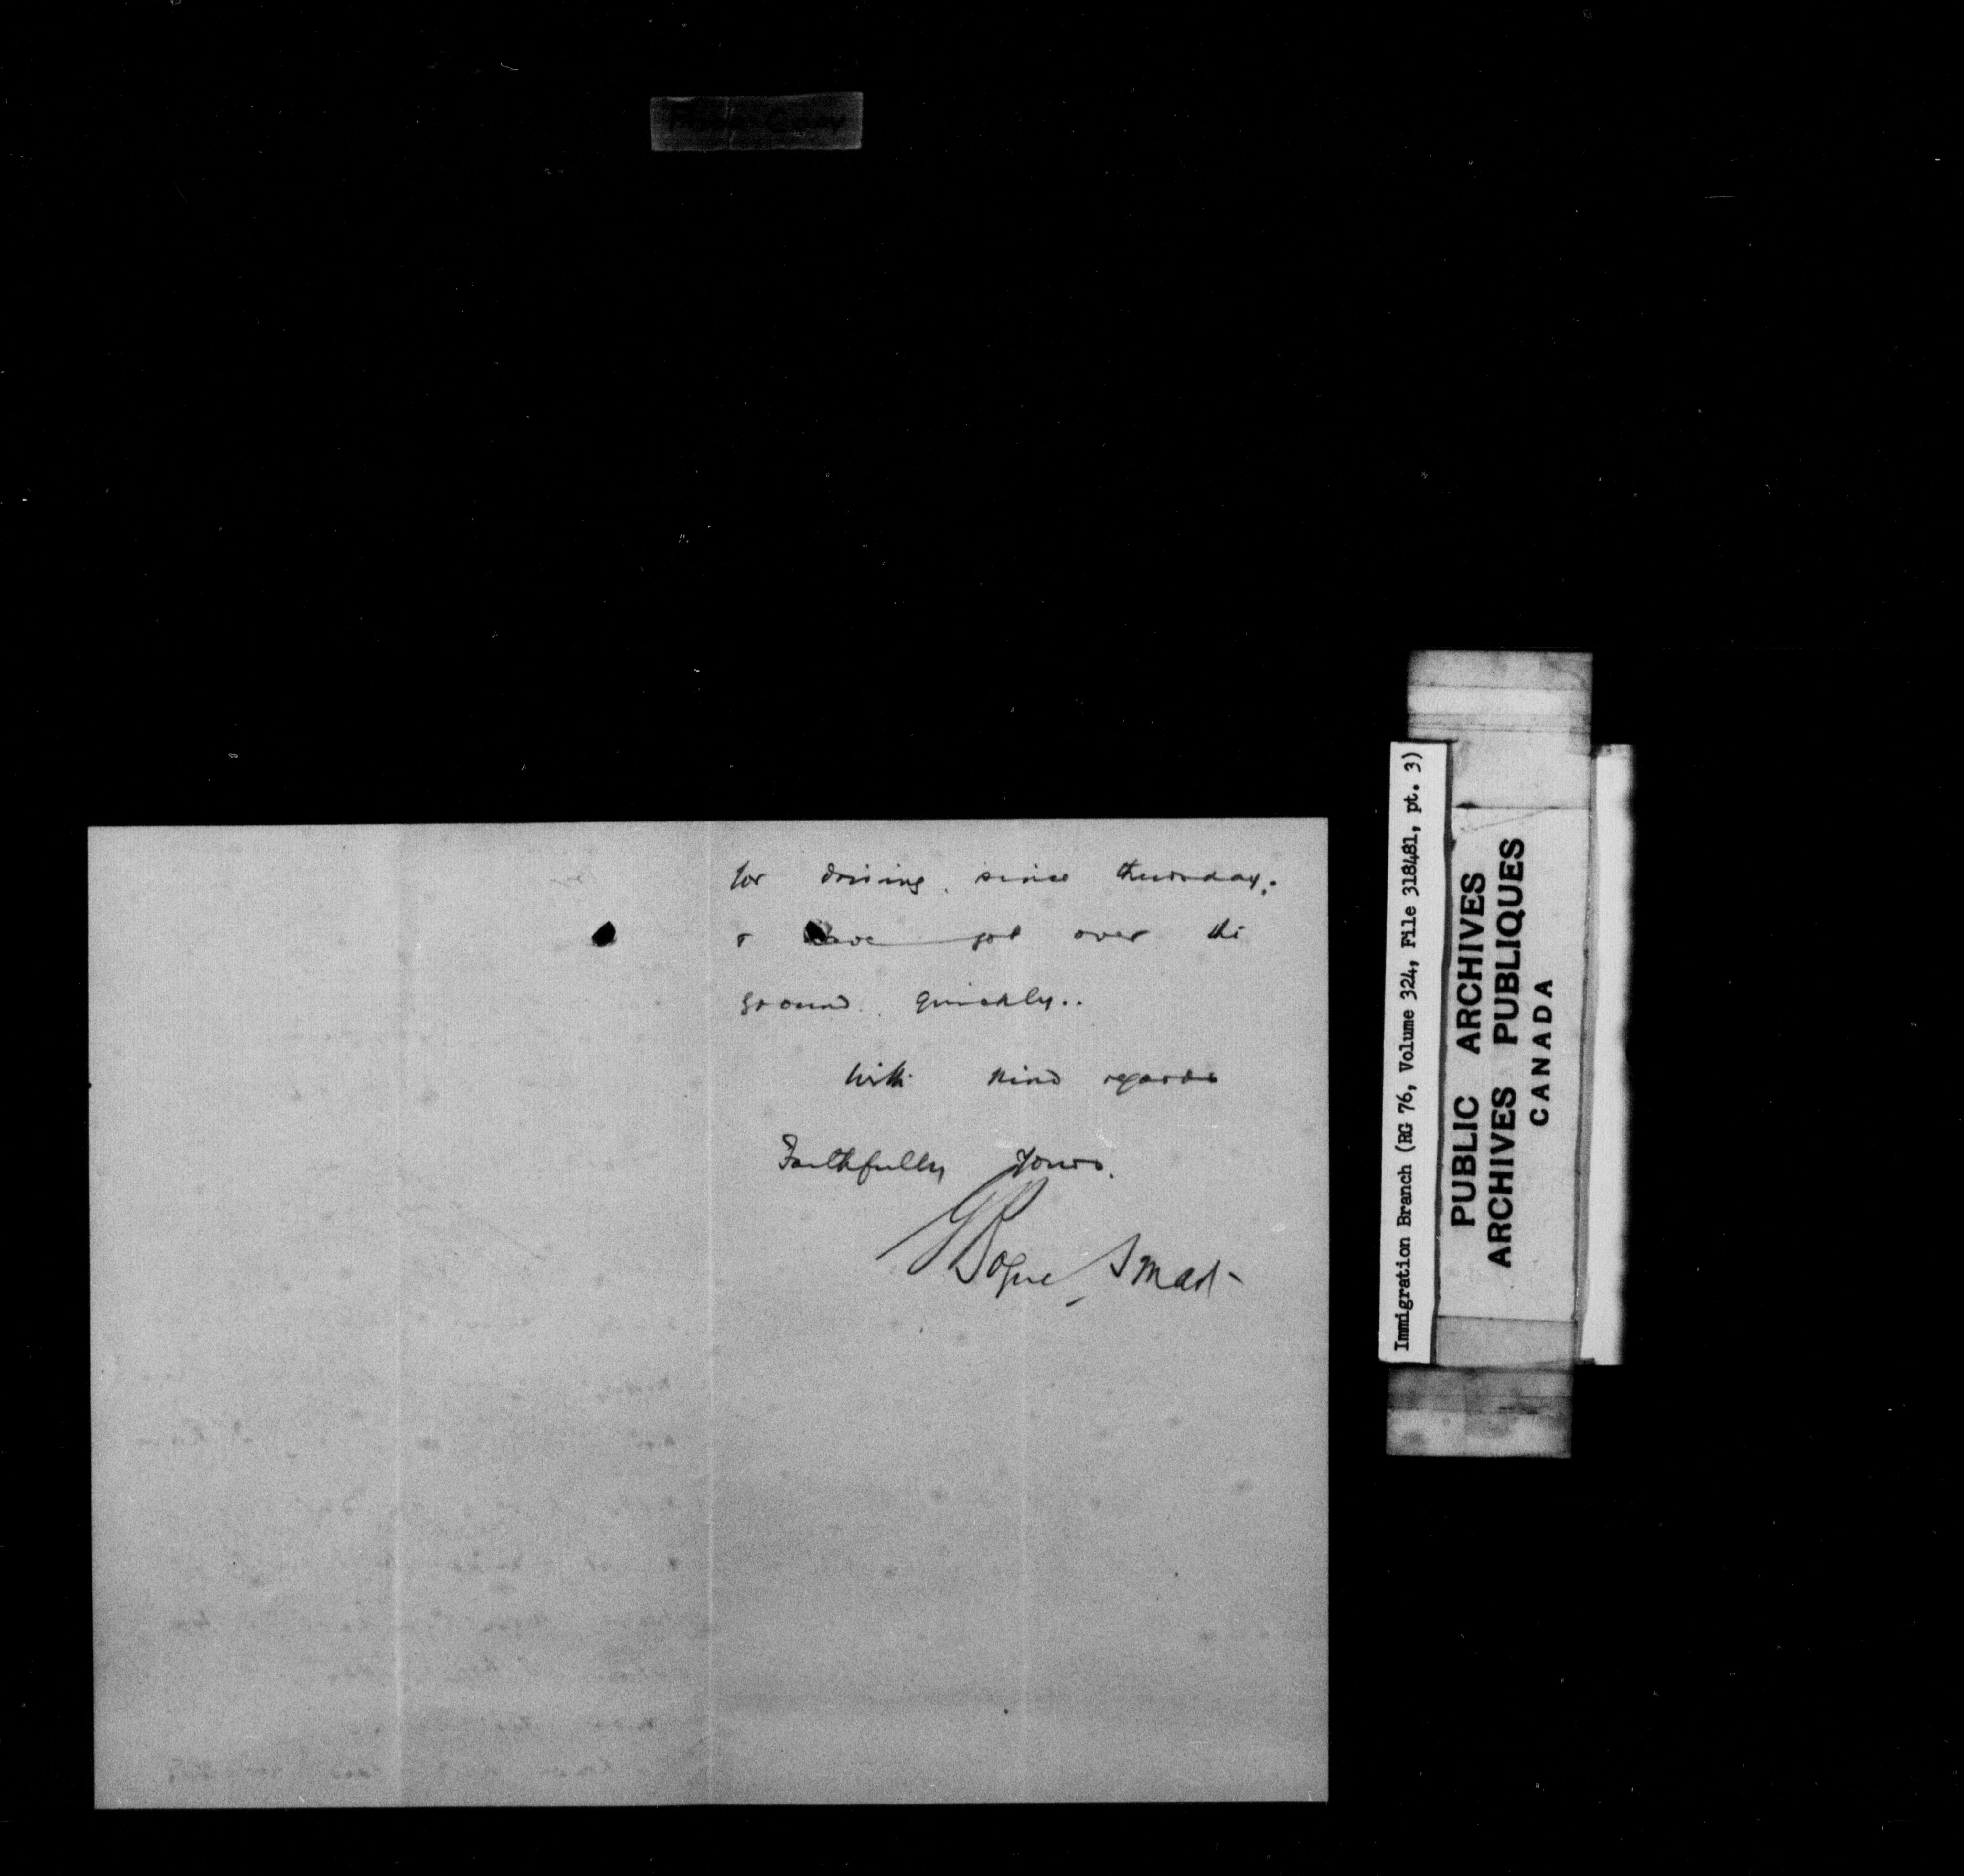 Poor Copy
for driving. since thursday;
& have got over the
ground.. quickly..
With kind regards
Faithfully Yours.
G Bogue Smart
Immigration Branch (RG 76, Volume 324, File 318481, pt. 3)
PUBLIC ARCHIVES
ARCHIVES PUBLIQUES
CANADA